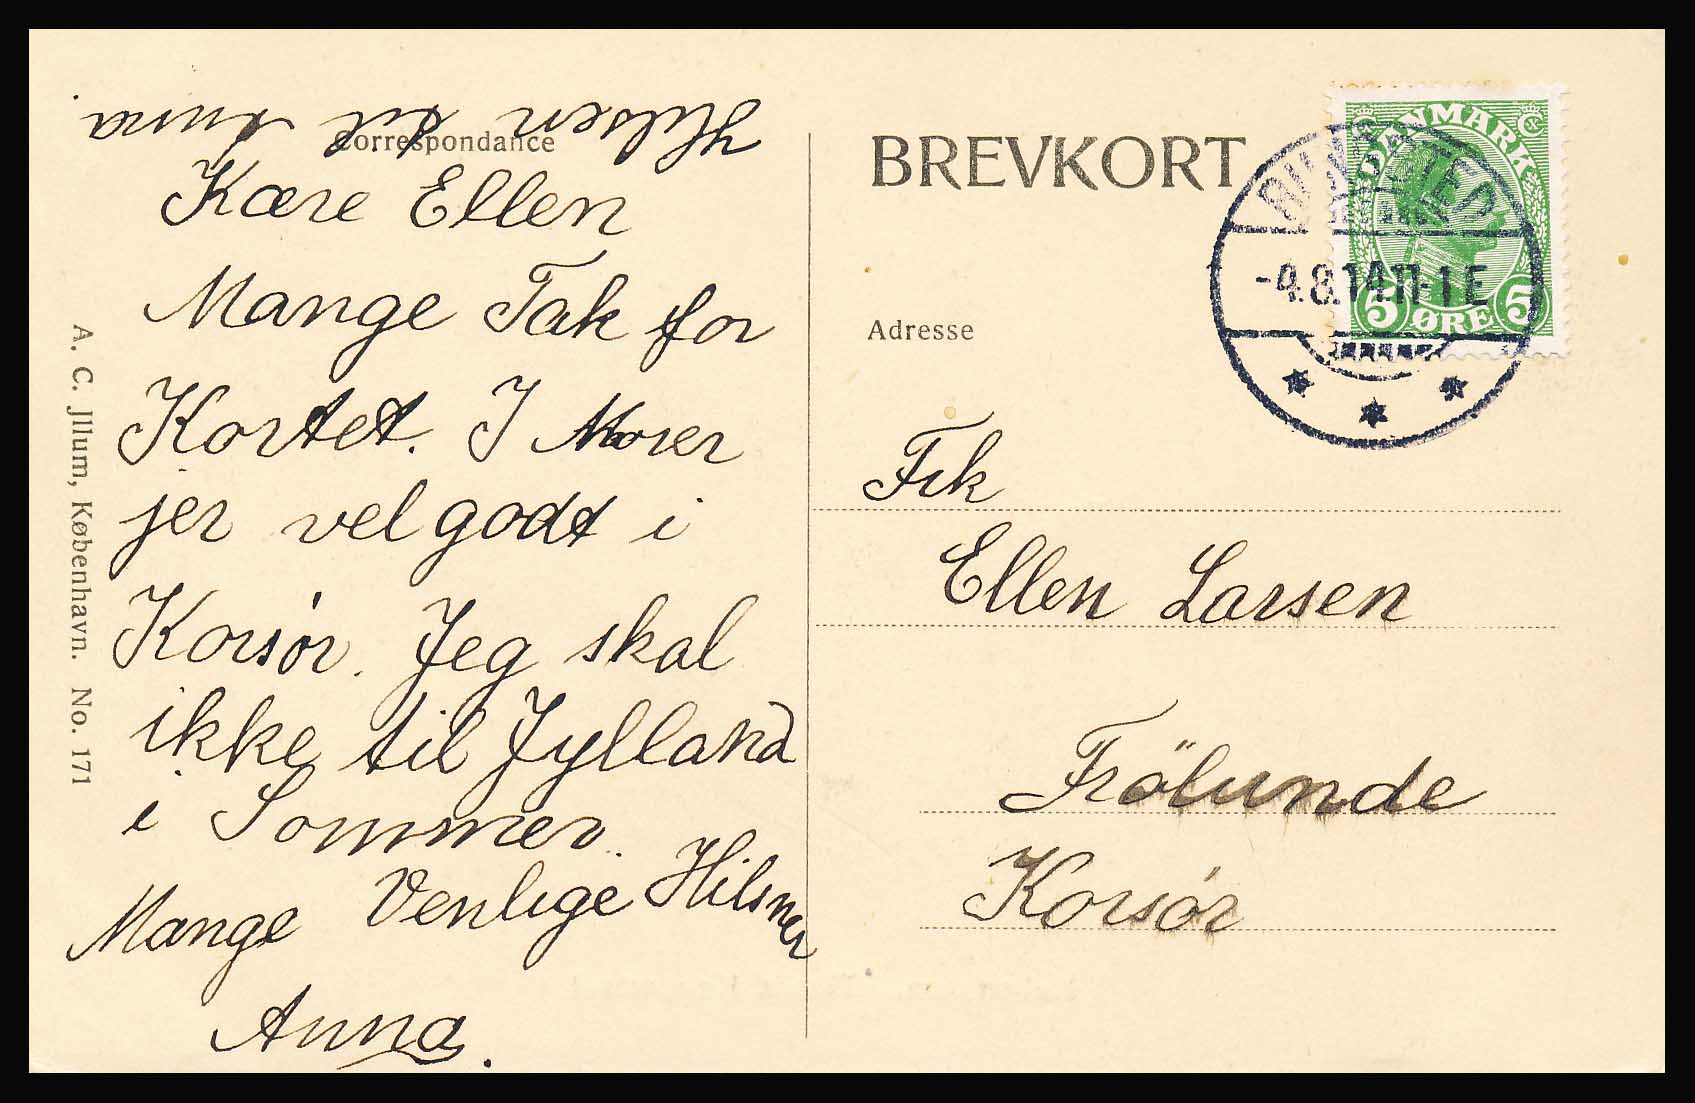 Hilsen til Anna
Correspondance
Kære Ellen
Mange Tak for
Kortet. I Morer
jer vel godt i
Korsør. Jeg skal
ikke til Jylland
i Sommer.
Mange Venlige Hilsner
Anna.
A. C. Jllum, København. No. 171
BREVKORT
DANMARK
5 ØRE 5
RINGSTED
-4.8.14 11-1 E
Adresse
Frk
Ellen Larsen
Frölunde
Korsør